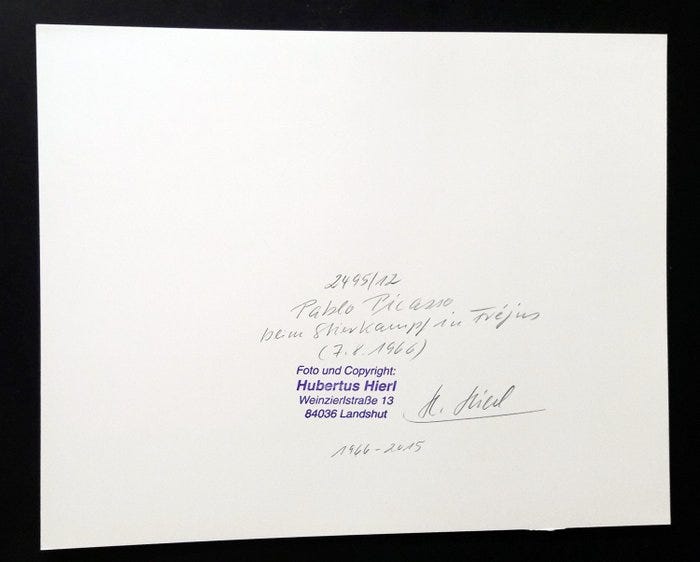 2495/12
Pablo Picasso
beim Stierkampf in Fréjus
(7.8.1966)
Foto und Copyright:
Hubertus Hierl
Weinzierlstraße 13
84036 Landshut
H. Hierl
1966-2015